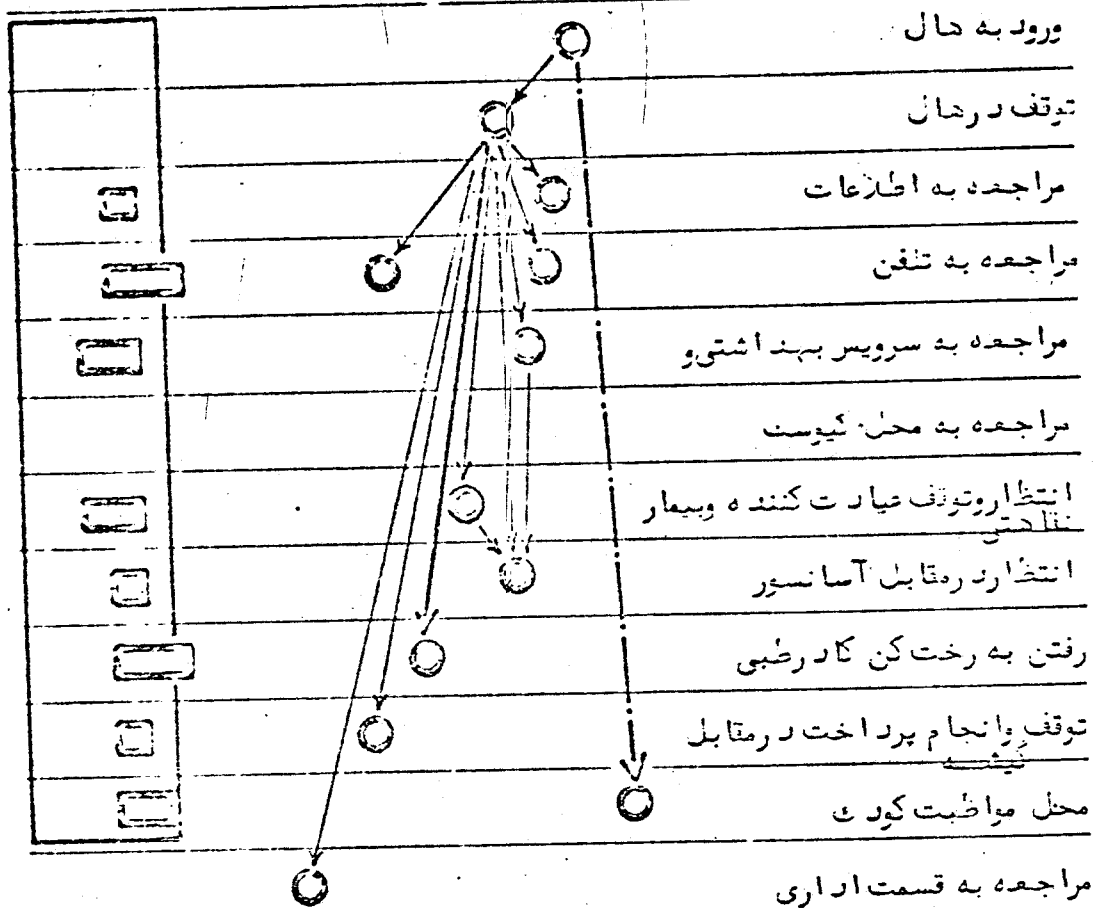 ورود به هال
توقف در هال
مراجعه به اطلاعات
مراجعه به تلفن
مراجعه به سرویس بهداشتی و
مراجعه به محل کیوسک
انتظار و توقف عیادت کننده و بیمار
نقاهتی
انتظار در مقابل آسانسور
رفتن به رخت کن کادر طبی
توقف و انجام پرداخت در مقابل
گیشه
محل مواظبت کودک
مراجعه به قسمت اداری